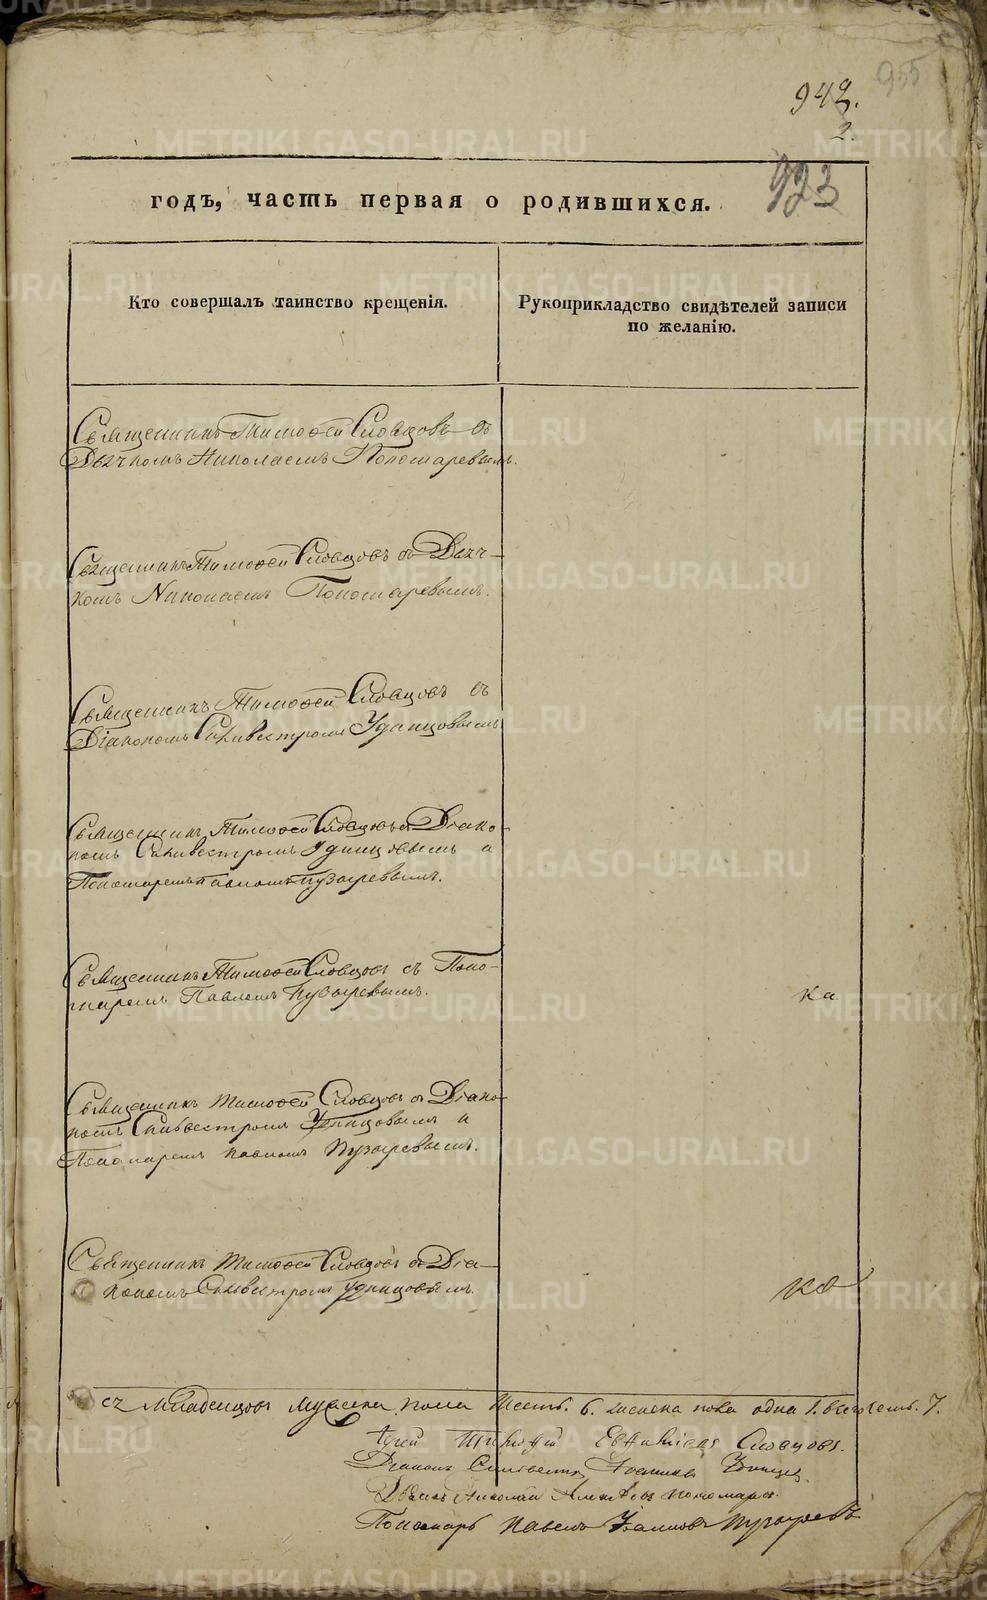 955
942.
2.
923
годъ, часть первая о родившихся.
Кто совершалъ таинство крещенія.
Рукоприкладство свидѣтелей записи
по желанію.
Священникъ Тимоѳей Словцовъ съ
Дьячкомъ Николаемъ Пономаревымъ.
Священникъ Тимоѳей Словцовъ съ Дьяч-
комъ Николаемъ Пономаревымъ.
Священникъ Тимоѳей Словцовъ съ
Діакономъ Сильвестромъ Удинцовымъ
Священникъ Тимоѳей Словцовъ съ Діако-
номъ Сильвестромъ Удинцовымъ и
Пономаремъ Павломъ Пузыревымъ.
Священникъ Тимоѳей Словцовъ съ Поно-
маремъ Павломъ Пузыревымъ.
ка
Священникъ Тимоѳей Словцовъ съ Діако-
номъ Сильвестромъ Удинцовымъ и
Пономаремъ Павломъ Пузыревымъ.
Священникъ Тимоѳей Словцовъ съ Діа-
кономъ Сильвестромъ Удинцовымъ.
младенцовъ мужеска пола шесть. 6. женска пола одна 1. 7.
Іерей Тимоѳей Словцовъ.
Діаконъ Сильвестръ Удинцов
Дьячекъ Николай Алексѣевъ Пономарев.
Пономарь Павелъ Пузыревъ
METRIKI.GASO-URAL.RU